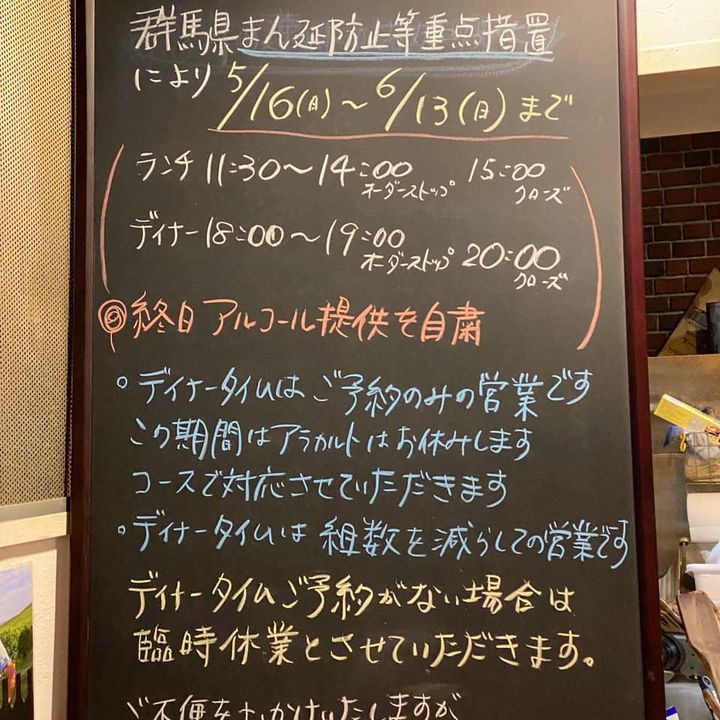 群馬県まん延防止等重点措置
により 5/16(月)～6/13(日)まで
ランチ 11:30～14:00 オーダーストップ 15:00 クローズ
ディナー 18:00～19:00 オーダーストップ 20:00 クローズ
◎終日 アルコール提供を自粛
。ディナータイムはご予約のみの営業です
この期間はアラカルトはお休みします
コースで対応させていただきます
。ディナータイムは 組数を減らしての営業です
ディナータイムご予約がない場合は
臨時休業とさせていただきます。
ご不便をおかけいたしますが